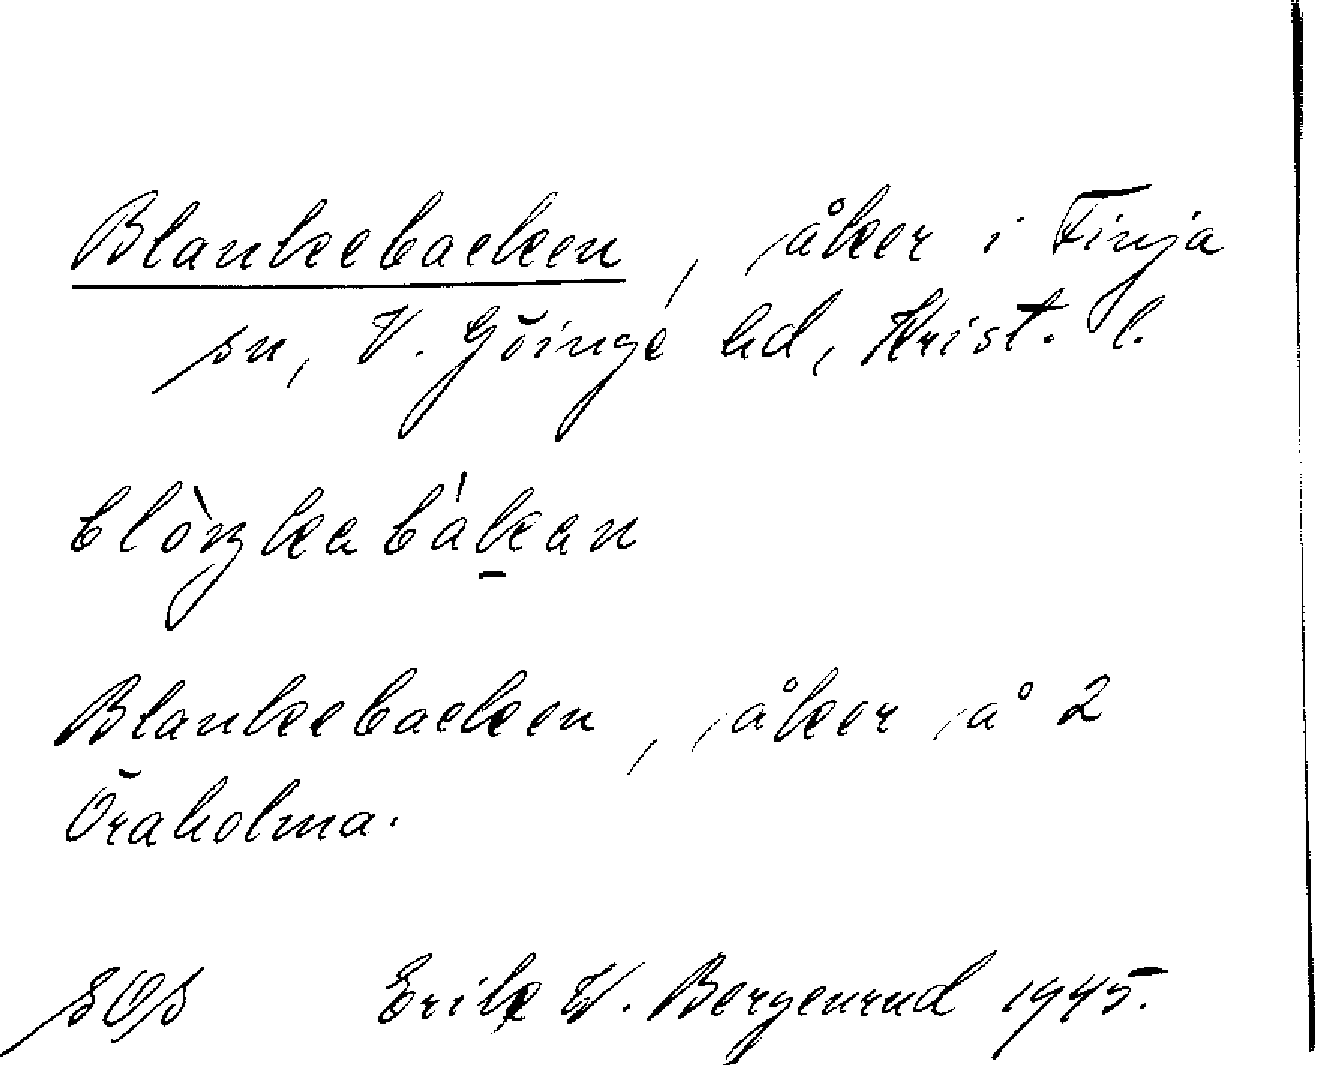 Blankebacken, åker i Finja
sn, V. Göinge hd, Krist. l.
Blankebacken, åker å 2
Öraholma.
SOS Erik W. Bergenrud 1945.